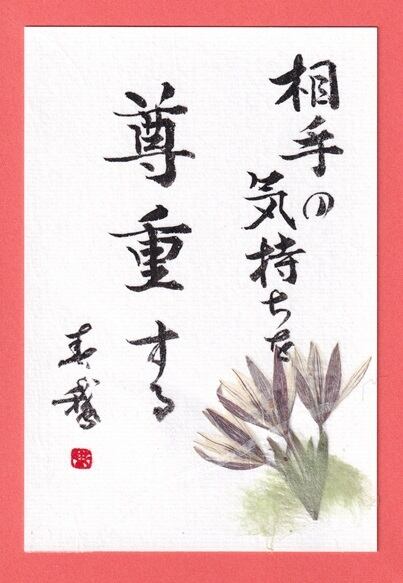 相手の気持ちを
尊重する